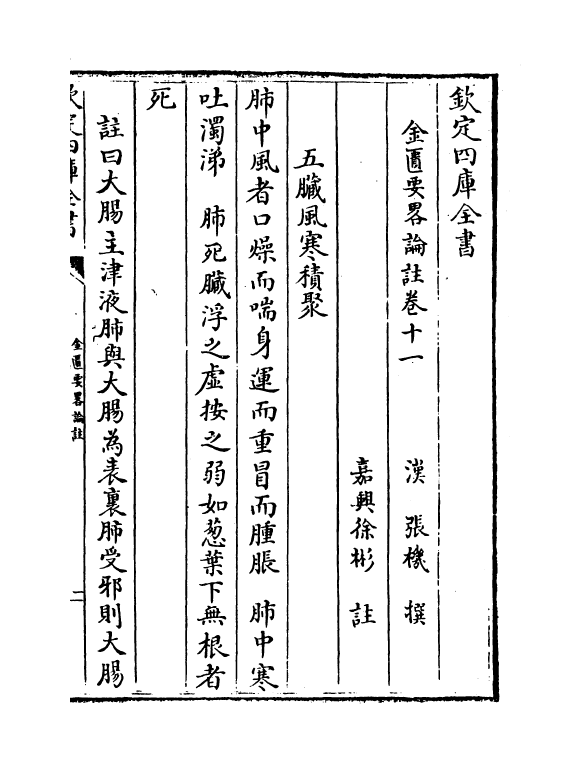 欽定四庫全書
金匱要畧論註卷十一
漢 張機 撰
嘉興徐彬 註
五臟風寒積聚
肺中風者口燥而喘身運而重冒而腫脹 肺中寒
吐濁涕 肺死臟浮之虛按之弱如葱葉下無根者
死
註曰大腸主津液肺與大腸為表裏肺受邪則大腸
欽定四庫全書
金匱要畧論註